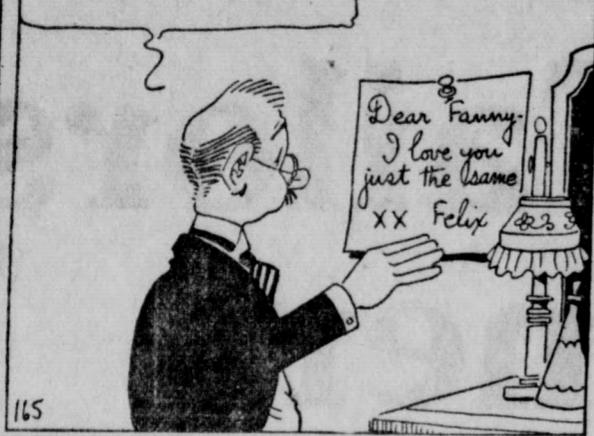 Dear Fanny-
I love you
just the same
XX Felix
165